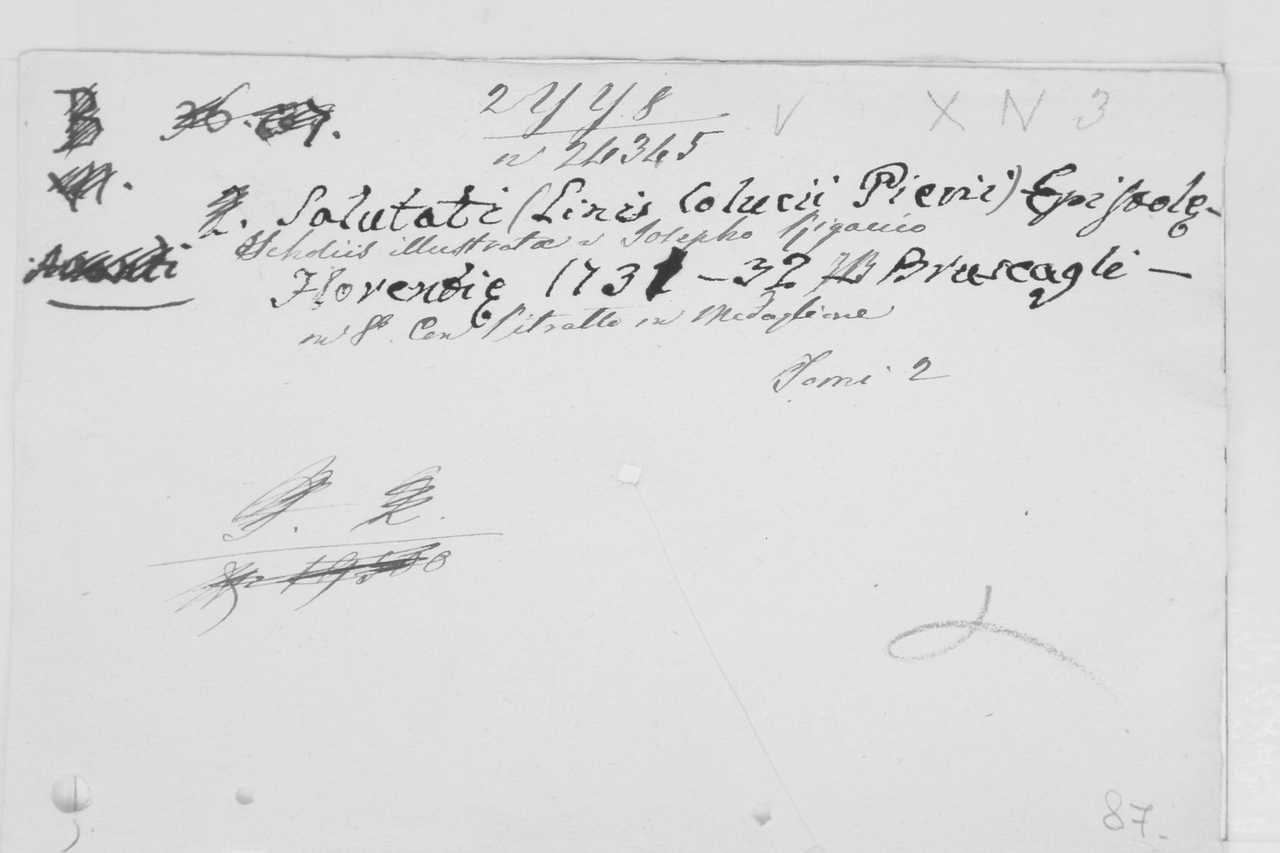 B 36. 27. 2 Y Y 8 V X N 3
n 24345
2. Salutati (Linis Colucii Pierii) Epistolę
Scholiis illustratæ a Josepho Rigaccio
Florentię 1731 - 32 JB Bruscagli -
in 8º. Con Ritratto in Medaglione
Tomi 2
87.